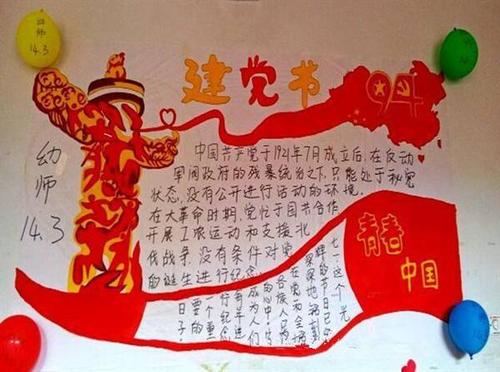 幼师
14.3
建党节
94
幼师
14.3
中国共产党于1921年7月成立后,在反动
军阀政府的残暴统治之下,只能处于秘密
状态,没有公开进行活动的环境.
在大革命时期,党忙于国共合作
开展工农运动和支援北
伐战争,没有条件对党
的诞生进行纪念
七一这个光
辉的节日已
青春
中国